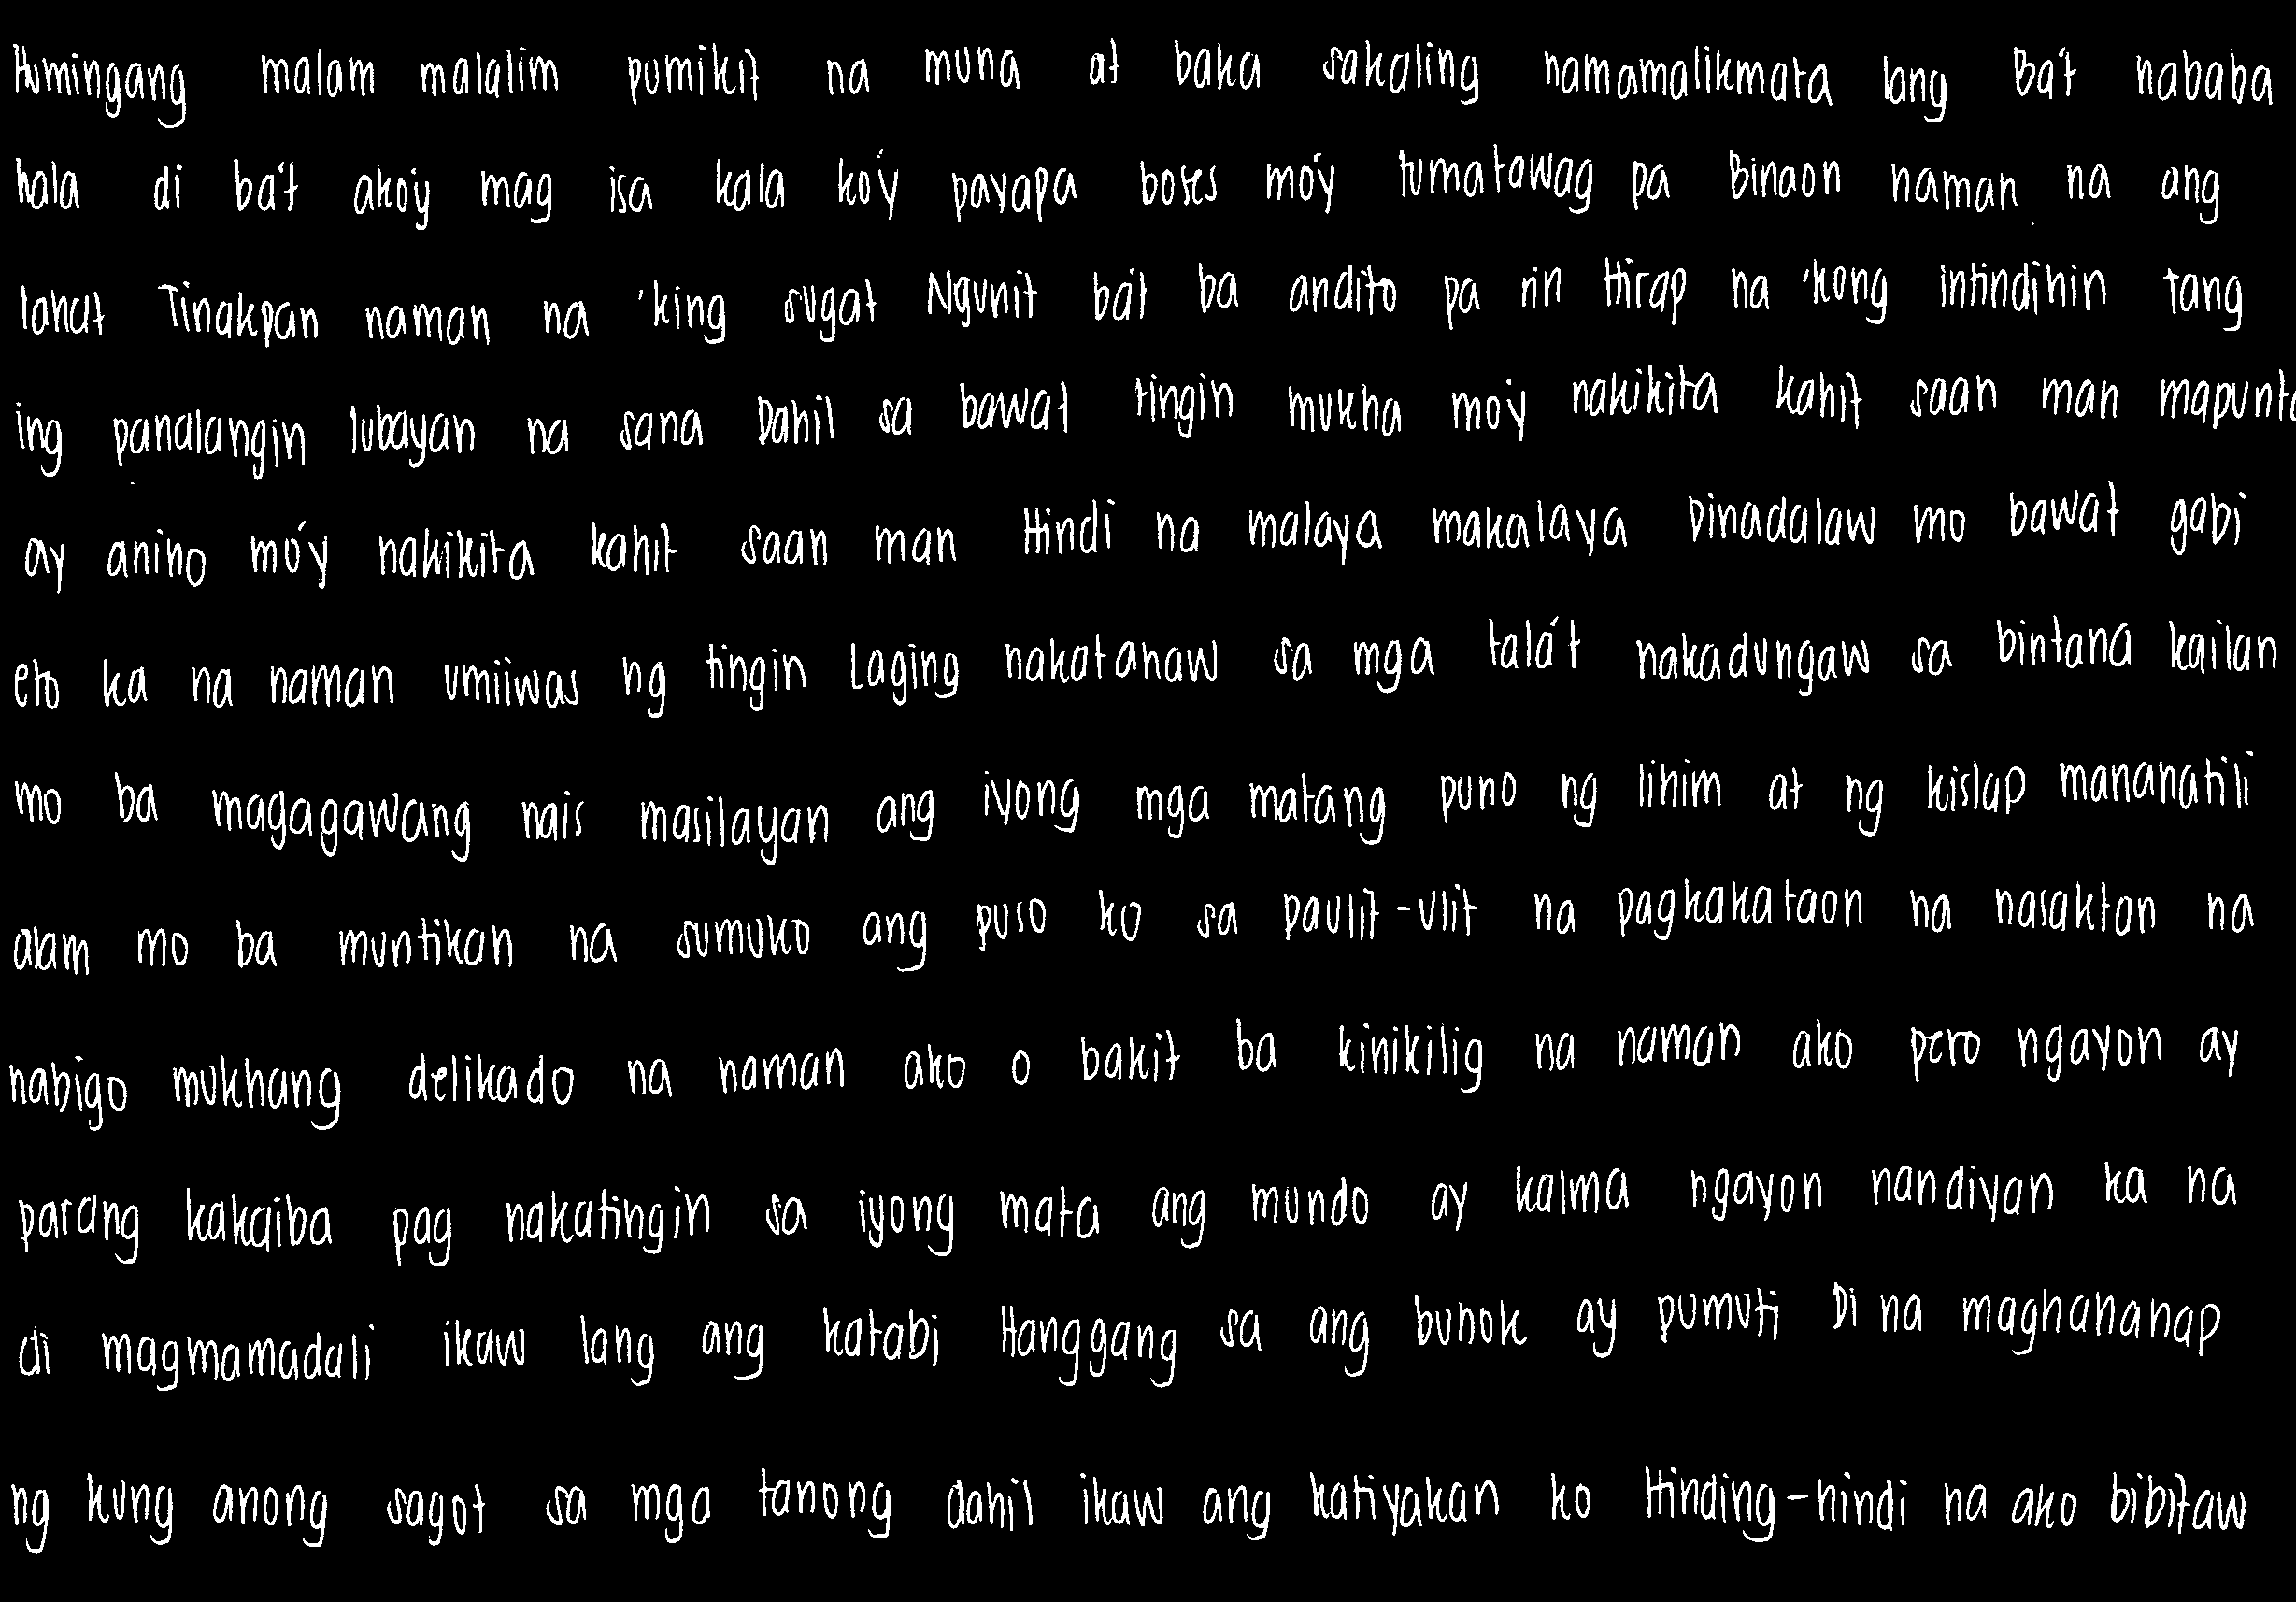 Humingang malam malalim pumikit na muna at baka sakaling namamalikmata lang Ba't nababa
hala di ba't ako'y mag isa kala ko'y payapa boses mo'y tumatawag pa Binaon naman na ang
lahat Tinakpan naman na 'king sugat Ngunit ba't ba andito pa rin Hirap na 'kong intindihin tang
ing panalangin lubayan na sana Dahil sa bawat tingin mukha mo'y nakikita kahit saan man mapunta
ay anino mo'y nakikita kahit saan man Hindi na malaya makalaya Dinadalaw mo bawat gabi
eto ka na naman umiiwas ng tingin Laging nakatanaw sa mga tala't nakadungaw sa bintana kailan
mo ba magagawang nais masilayan ang iyong mga matang puno ng lihim at ng kislap mananatili
alam mo ba muntikan na sumuko ang puso ko sa paulit-ulit na pagkakataon na nasaktan na
nabigo mukhang delikado na naman ako o bakit ba kinikilig na naman ako pero ngayon ay
parang kakaiba pag nakatingin sa iyong mata ang mundo ay kalma ngayon nandiyan ka na
di magmamadali ikaw lang ang katabi Hanggang sa ang buhok ay pumuti Di na maghahanap
ng kung anong sagot sa mga tanong dahil ikaw ang katiyakan ko Hinding-hindi na ako bibitaw